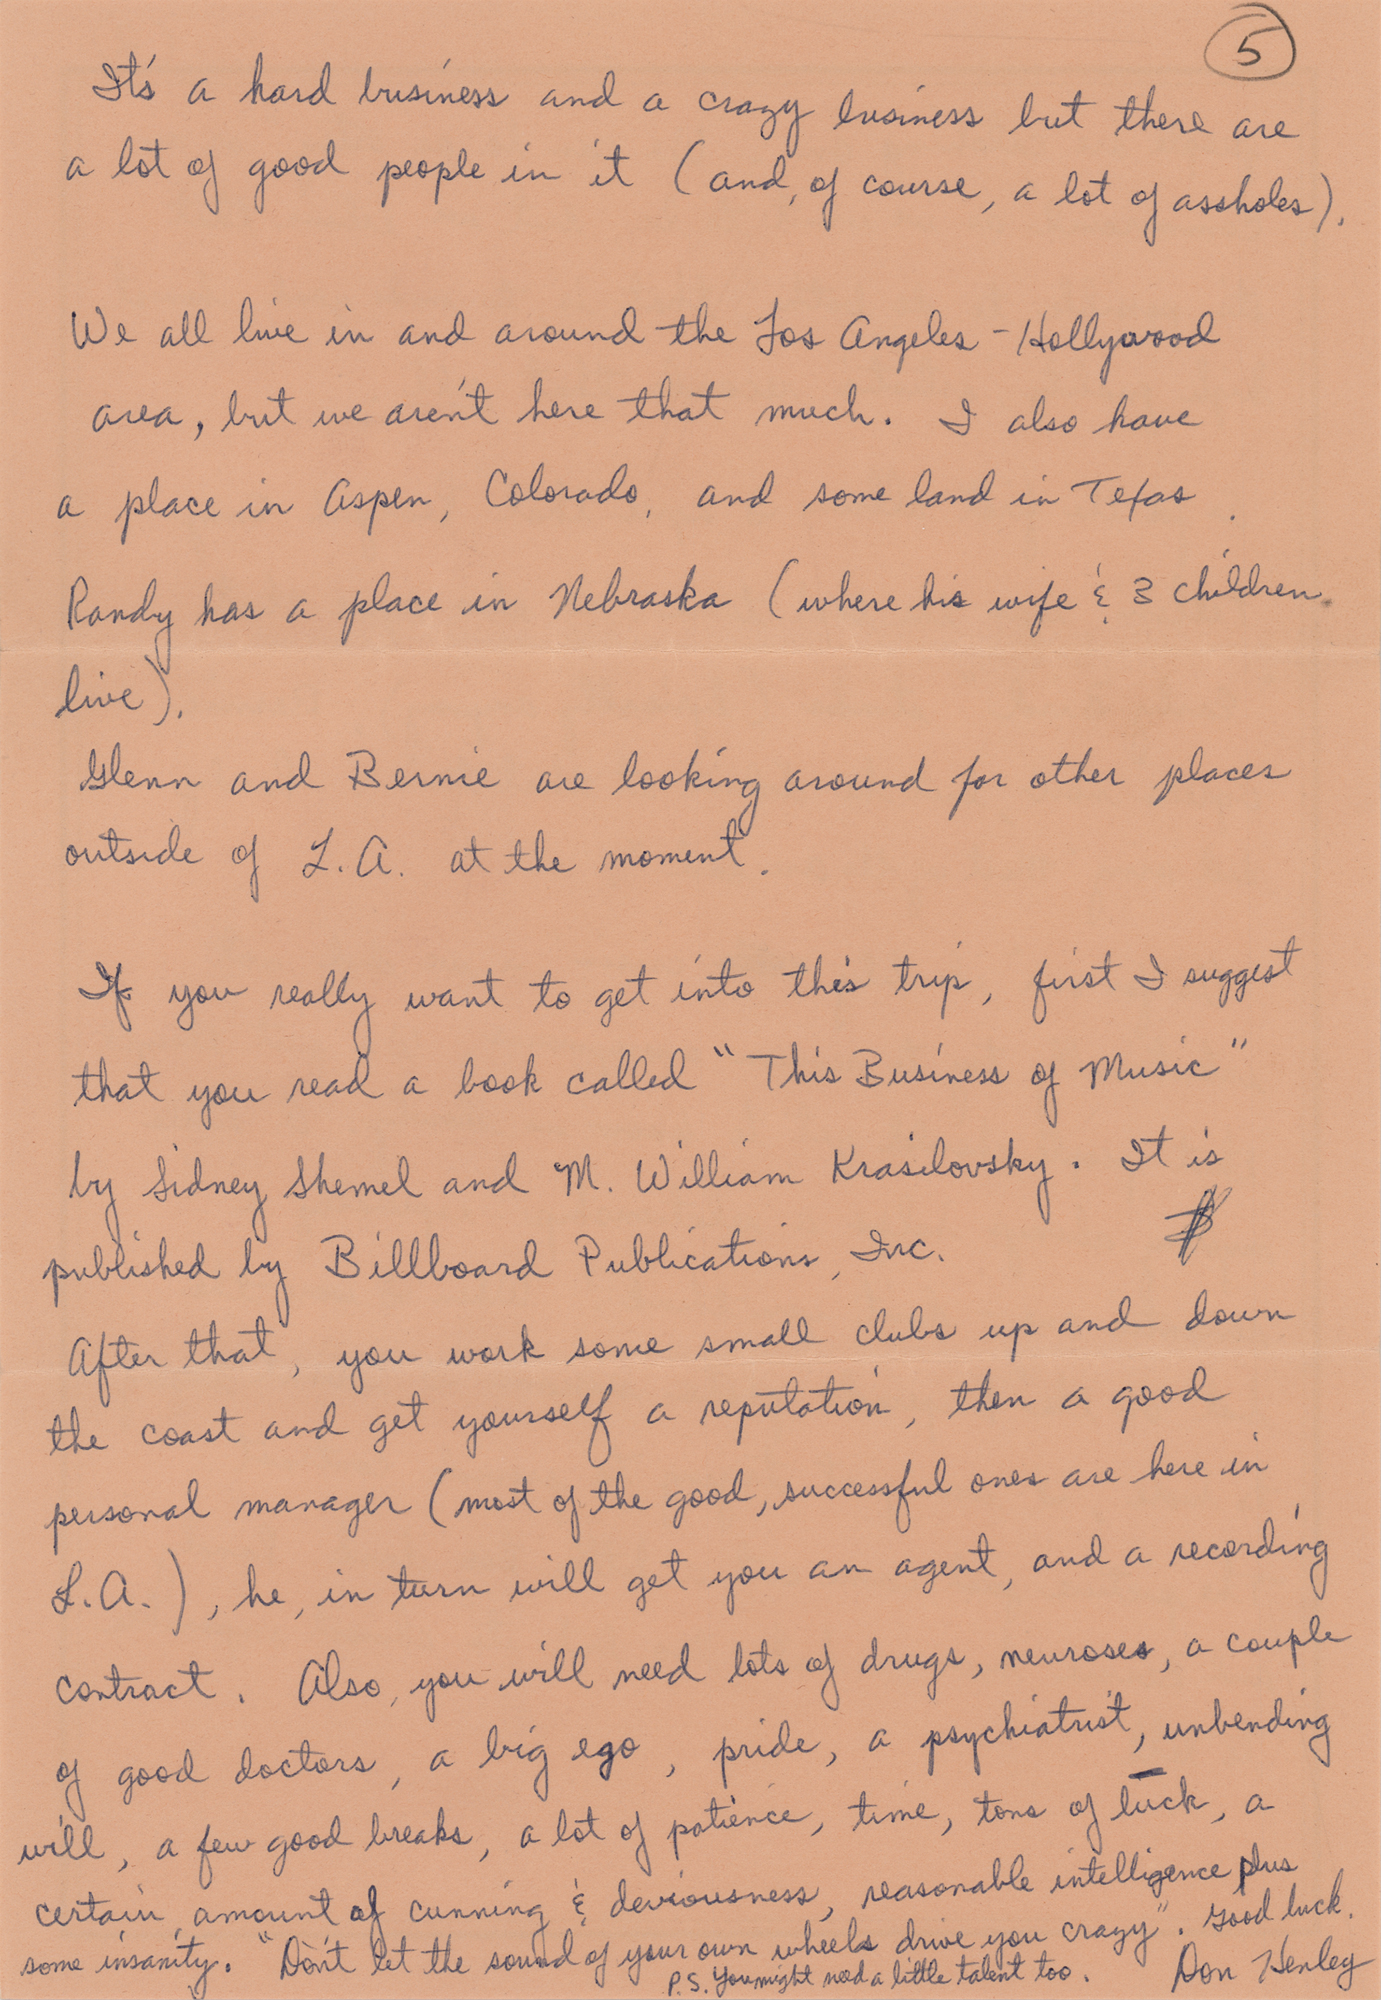 5
It's a hard business and a crazy business but there are
a lot of good people in it (and, of course, a lot of assholes).
We all live in and around the Los Angeles - Hollywood
area, but we aren't here that much. I also have
a place in Aspen, Colorado, and some land in Texas.
Randy has a place in Nebraska (where his wife & 3 children
live).
Glenn and Bernie are looking around for other places
outside of L.A. at the moment.
If you really want to get into this trip, first I suggest
that you read a book called "This Business of Music"
by Sidney Shemel and M. William Krasilovsky. It is
published by Billboard Publications, Inc.
After that, you work some small clubs up and down
the coast and get yourself a reputation, then a good
personal manager (most of the good, successful ones are here in
L.A.), he, in turn will get you an agent, and a recording
contract. Also, you will need lots of drugs, neuroses, a couple
of good doctors, a big ego, pride, a psychiatrist, unbending
will, a few good breaks, a lot of patience, time, tons of luck, a
certain amount of cunning & deviousness, reasonable intelligence plus
some insanity. "Don't let the sound of your own wheels drive you crazy". Good luck.
Don Henley
P.S. You might need a little talent too.